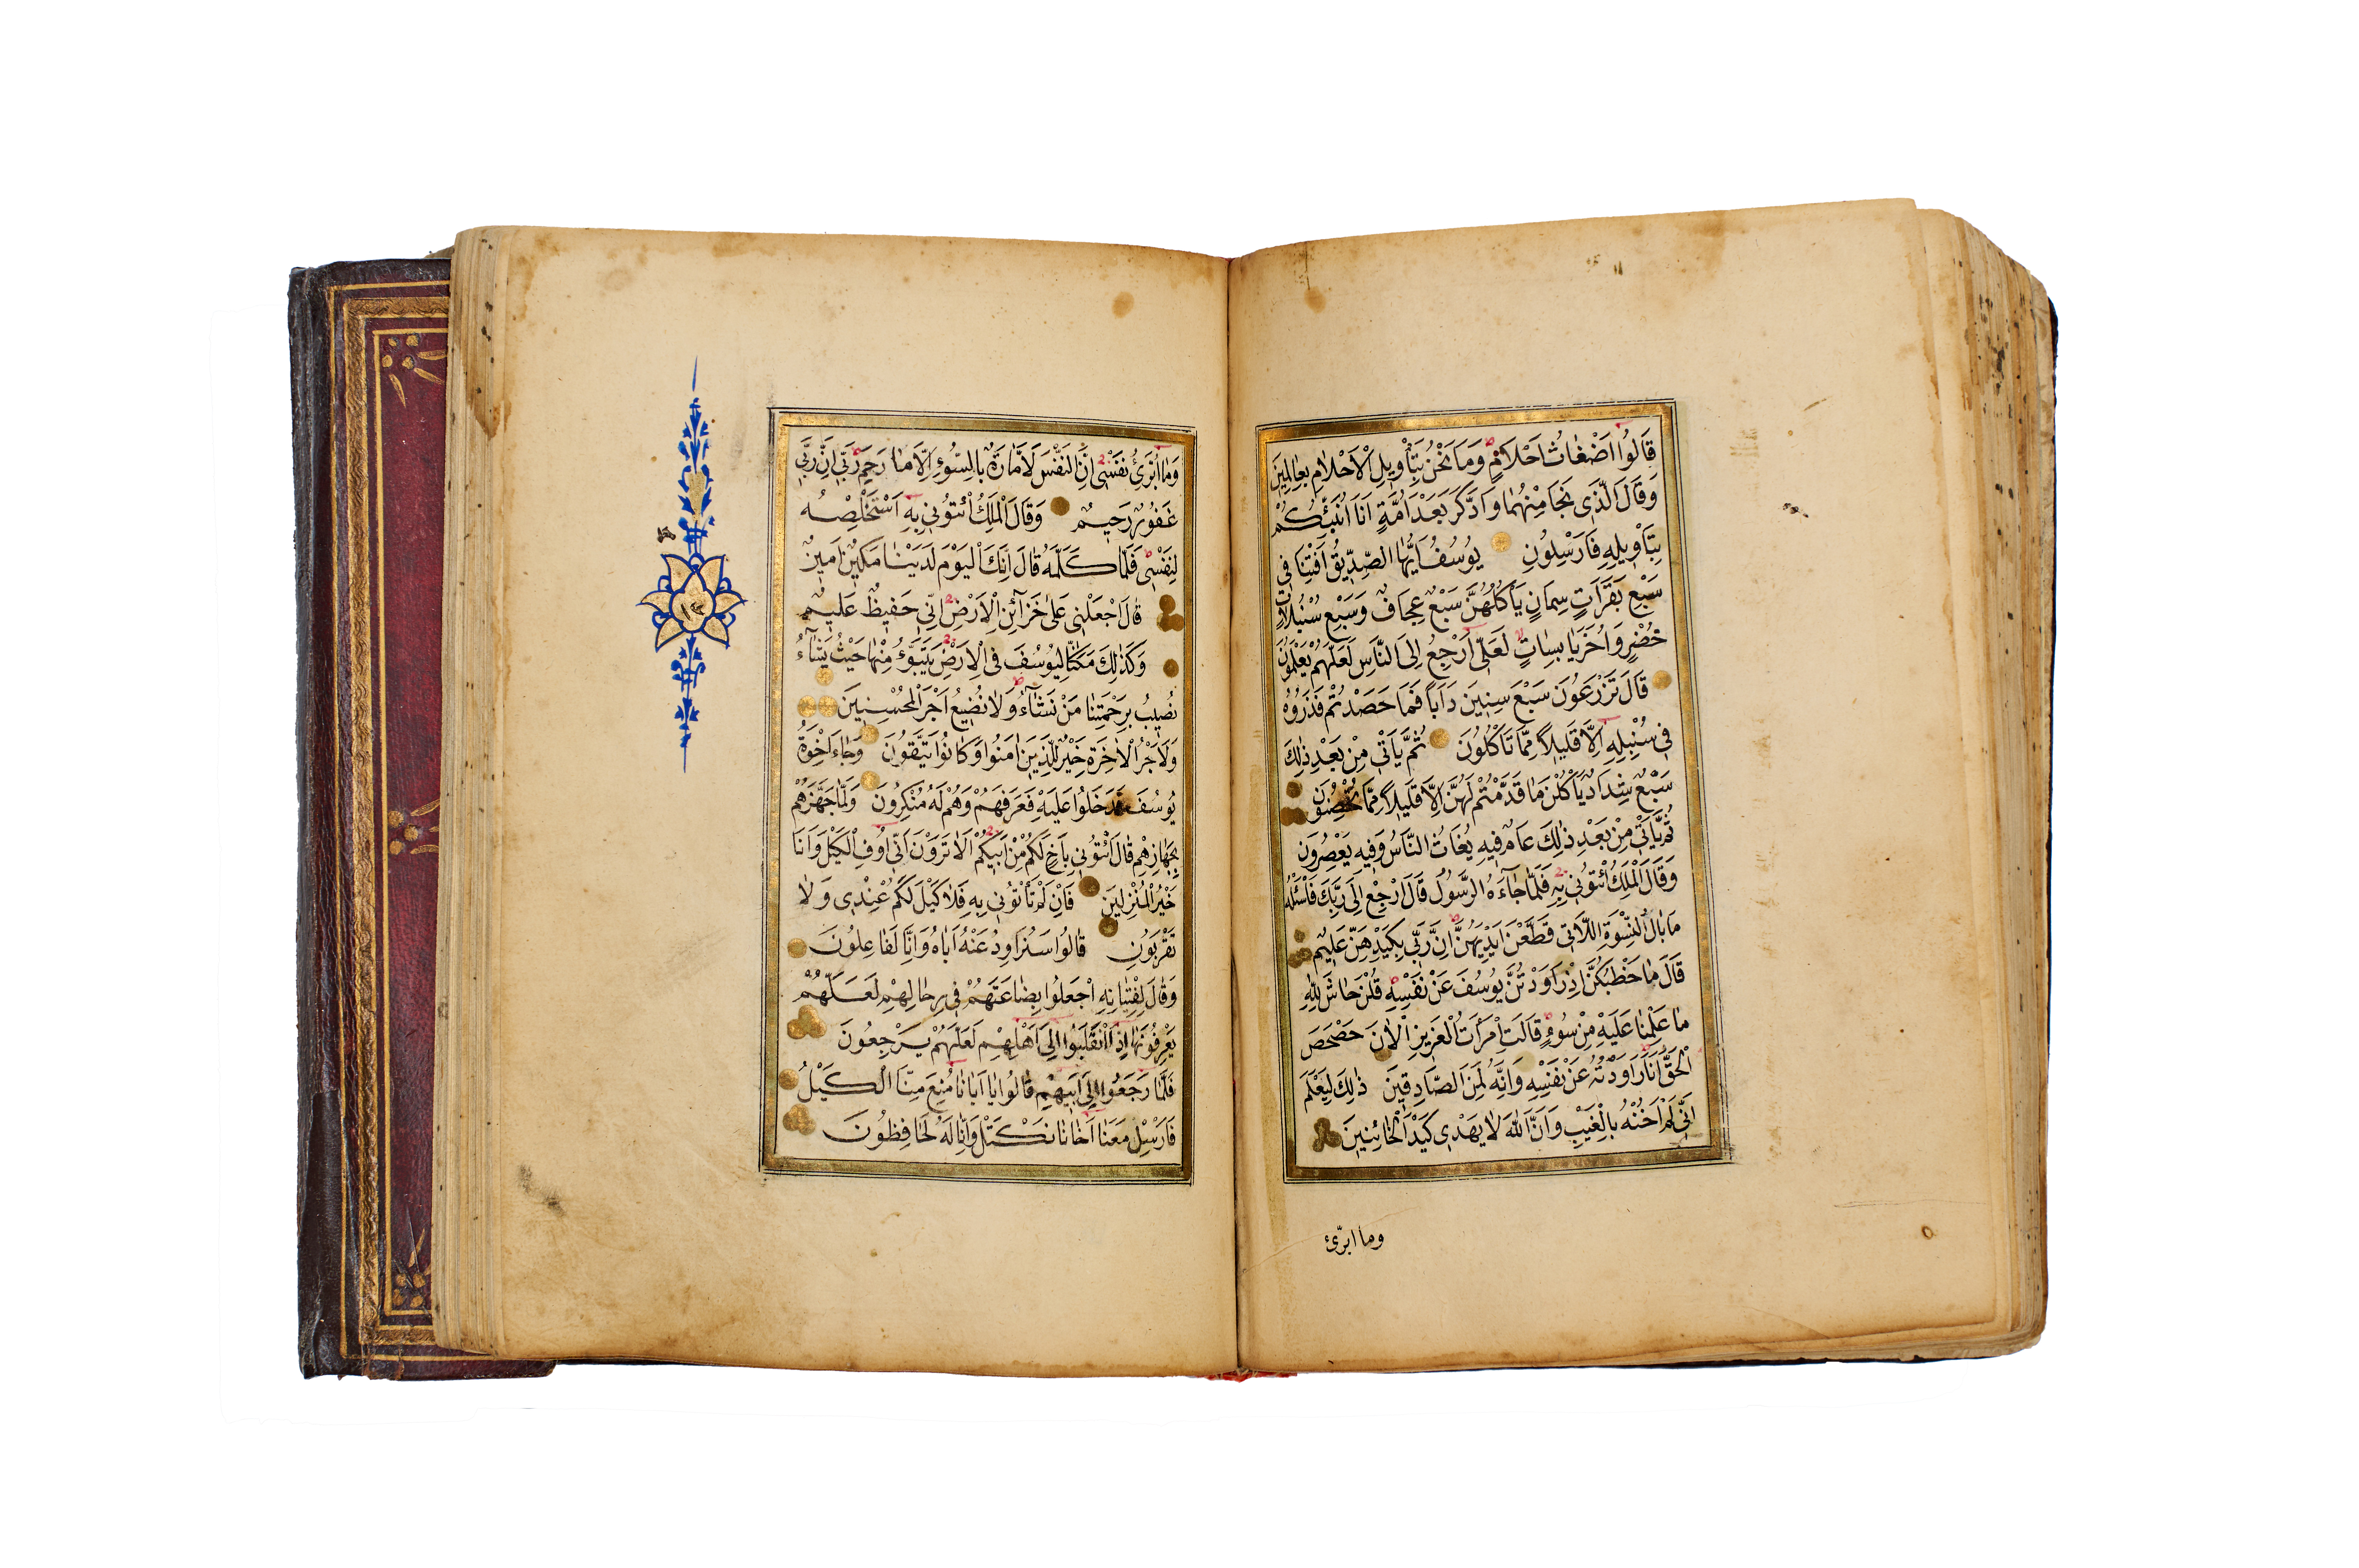 قَالُوا اَضْغَاثُ اَحْلَامٍ وَمَا نَحْنُ بِتَأْوِيلِ الْاَحْلَامِ بِعَالِمِينَ
وَقَالَ الَّذِي نَجَا مِنْهُمَا وَادَّكَرَ بَعْدَ اُمَّةٍ اَنَا اُنَبِّئُكُمْ
بِتَأْوِيلِهِ فَاَرْسِلُونِ يُوسُفُ اَيُّهَا الصِّدِّيقُ اَفْتِنَا فِي
سَبْعِ بَقَرَاتٍ سِمَانٍ يَأْكُلُهُنَّ سَبْعٌ عِجَافٌ وَسَبْعِ سُنْبُلَاتٍ
خُضْرٍ وَاُخَرَ يَابِسَاتٍ لَعَلِّي اَرْجِعُ اِلَى النَّاسِ لَعَلَّهُمْ يَعْلَمُونَ
قَالَ تَزْرَعُونَ سَبْعَ سِنِينَ دَاَبًا فَمَا حَصَدْتُمْ فَذَرُوهُ
فِي سُنْبُلِهِ اِلَّا قَلِيلًا مِمَّا تَأْكُلُونَ ثُمَّ يَأْتِي مِنْ بَعْدِ ذٰلِكَ
سَبْعٌ شِدَادٌ يَأْكُلْنَ مَا قَدَّمْتُمْ لَهُنَّ اِلَّا قَلِيلًا مِمَّا تُحْصِنُونَ
ثُمَّ يَأْتِي مِنْ بَعْدِ ذٰلِكَ عَامٌ فِيهِ يُغَاثُ النَّاسُ وَفِيهِ يَعْصِرُونَ
وَقَالَ الْمَلِكُ ائْتُونِي بِهِ فَلَمَّا جَاءَهُ الرَّسُولُ قَالَ ارْجِعْ اِلَى رَبِّكَ فَاسْئَلْهُ
مَا بَالُ النِّسْوَةِ اللَّاتِي قَطَّعْنَ اَيْدِيَهُنَّ اِنَّ رَبِّي بِكَيْدِهِنَّ عَلِيمٌ
قَالَ مَا خَطْبُكُنَّ اِذْ رَاوَدْتُنَّ يُوسُفَ عَنْ نَفْسِهِ قُلْنَ حَاشَ لِلّٰهِ
مَا عَلِمْنَا عَلَيْهِ مِنْ سُوءٍ قَالَتِ امْرَاَتُ الْعَزِيزِ الْاٰنَ حَصْحَصَ
الْحَقُّ اَنَا رَاوَدْتُهُ عَنْ نَفْسِهِ وَاِنَّهُ لَمِنَ الصَّادِقِينَ ذٰلِكَ لِيَعْلَمَ
اَنِّي لَمْ اَخُنْهُ بِالْغَيْبِ وَاَنَّ اللّٰهَ لَا يَهْدِي كَيْدَ الْخَائِنِينَ
وما ابرّئ
وَمَا اُبَرِّئُ نَفْسِي اِنَّ النَّفْسَ لَاَمَّارَةٌ بِالسُّوءِ اِلَّا مَا رَحِمَ رَبِّي اِنَّ رَبِّي
غَفُورٌ رَحِيمٌ وَقَالَ الْمَلِكُ ائْتُونِي بِهِ اَسْتَخْلِصْهُ
لِنَفْسِي فَلَمَّا كَلَّمَهُ قَالَ اِنَّكَ الْيَوْمَ لَدَيْنَا مَكِينٌ اَمِينٌ
قَالَ اجْعَلْنِي عَلٰى خَزَائِنِ الْاَرْضِ اِنِّي حَفِيظٌ عَلِيمٌ
وَكَذٰلِكَ مَكَّنَّا لِيُوسُفَ فِي الْاَرْضِ يَتَبَوَّؤُ مِنْهَا حَيْثُ يَشَاءُ
نُصِيبُ بِرَحْمَتِنَا مَنْ نَشَاءُ وَلَا نُضِيعُ اَجْرَ الْمُحْسِنِينَ
وَلَاَجْرُ الْاٰخِرَةِ خَيْرٌ لِلَّذِينَ اٰمَنُوا وَكَانُوا يَتَّقُونَ وَجَاءَ اِخْوَةُ
يُوسُفَ فَدَخَلُوا عَلَيْهِ فَعَرَفَهُمْ وَهُمْ لَهُ مُنْكِرُونَ وَلَمَّا جَهَّزَهُمْ
بِجَهَازِهِمْ قَالَ ائْتُونِي بِاَخٍ لَكُمْ مِنْ اَبِيكُمْ اَلَا تَرَوْنَ اَنِّي اُوفِي الْكَيْلَ وَاَنَا
خَيْرُ الْمُنْزِلِينَ فَاِنْ لَمْ تَأْتُونِي بِهِ فَلَا كَيْلَ لَكُمْ عِنْدِي وَلَا
تَقْرَبُونِ قَالُوا سَنُرَاوِدُ عَنْهُ اَبَاهُ وَاِنَّا لَفَاعِلُونَ
وَقَالَ لِفِتْيَانِهِ اجْعَلُوا بِضَاعَتَهُمْ فِي رِحَالِهِمْ لَعَلَّهُمْ
يَعْرِفُونَهَا اِذَا انْقَلَبُوا اِلٰى اَهْلِهِمْ لَعَلَّهُمْ يَرْجِعُونَ
فَلَمَّا رَجَعُوا اِلٰى اَبِيهِمْ قَالُوا يَا اَبَانَا مُنِعَ مِنَّا الْكَيْلُ
فَاَرْسِلْ مَعَنَا اَخَانَا نَكْتَلْ وَاِنَّا لَهُ لَحَافِظُونَ